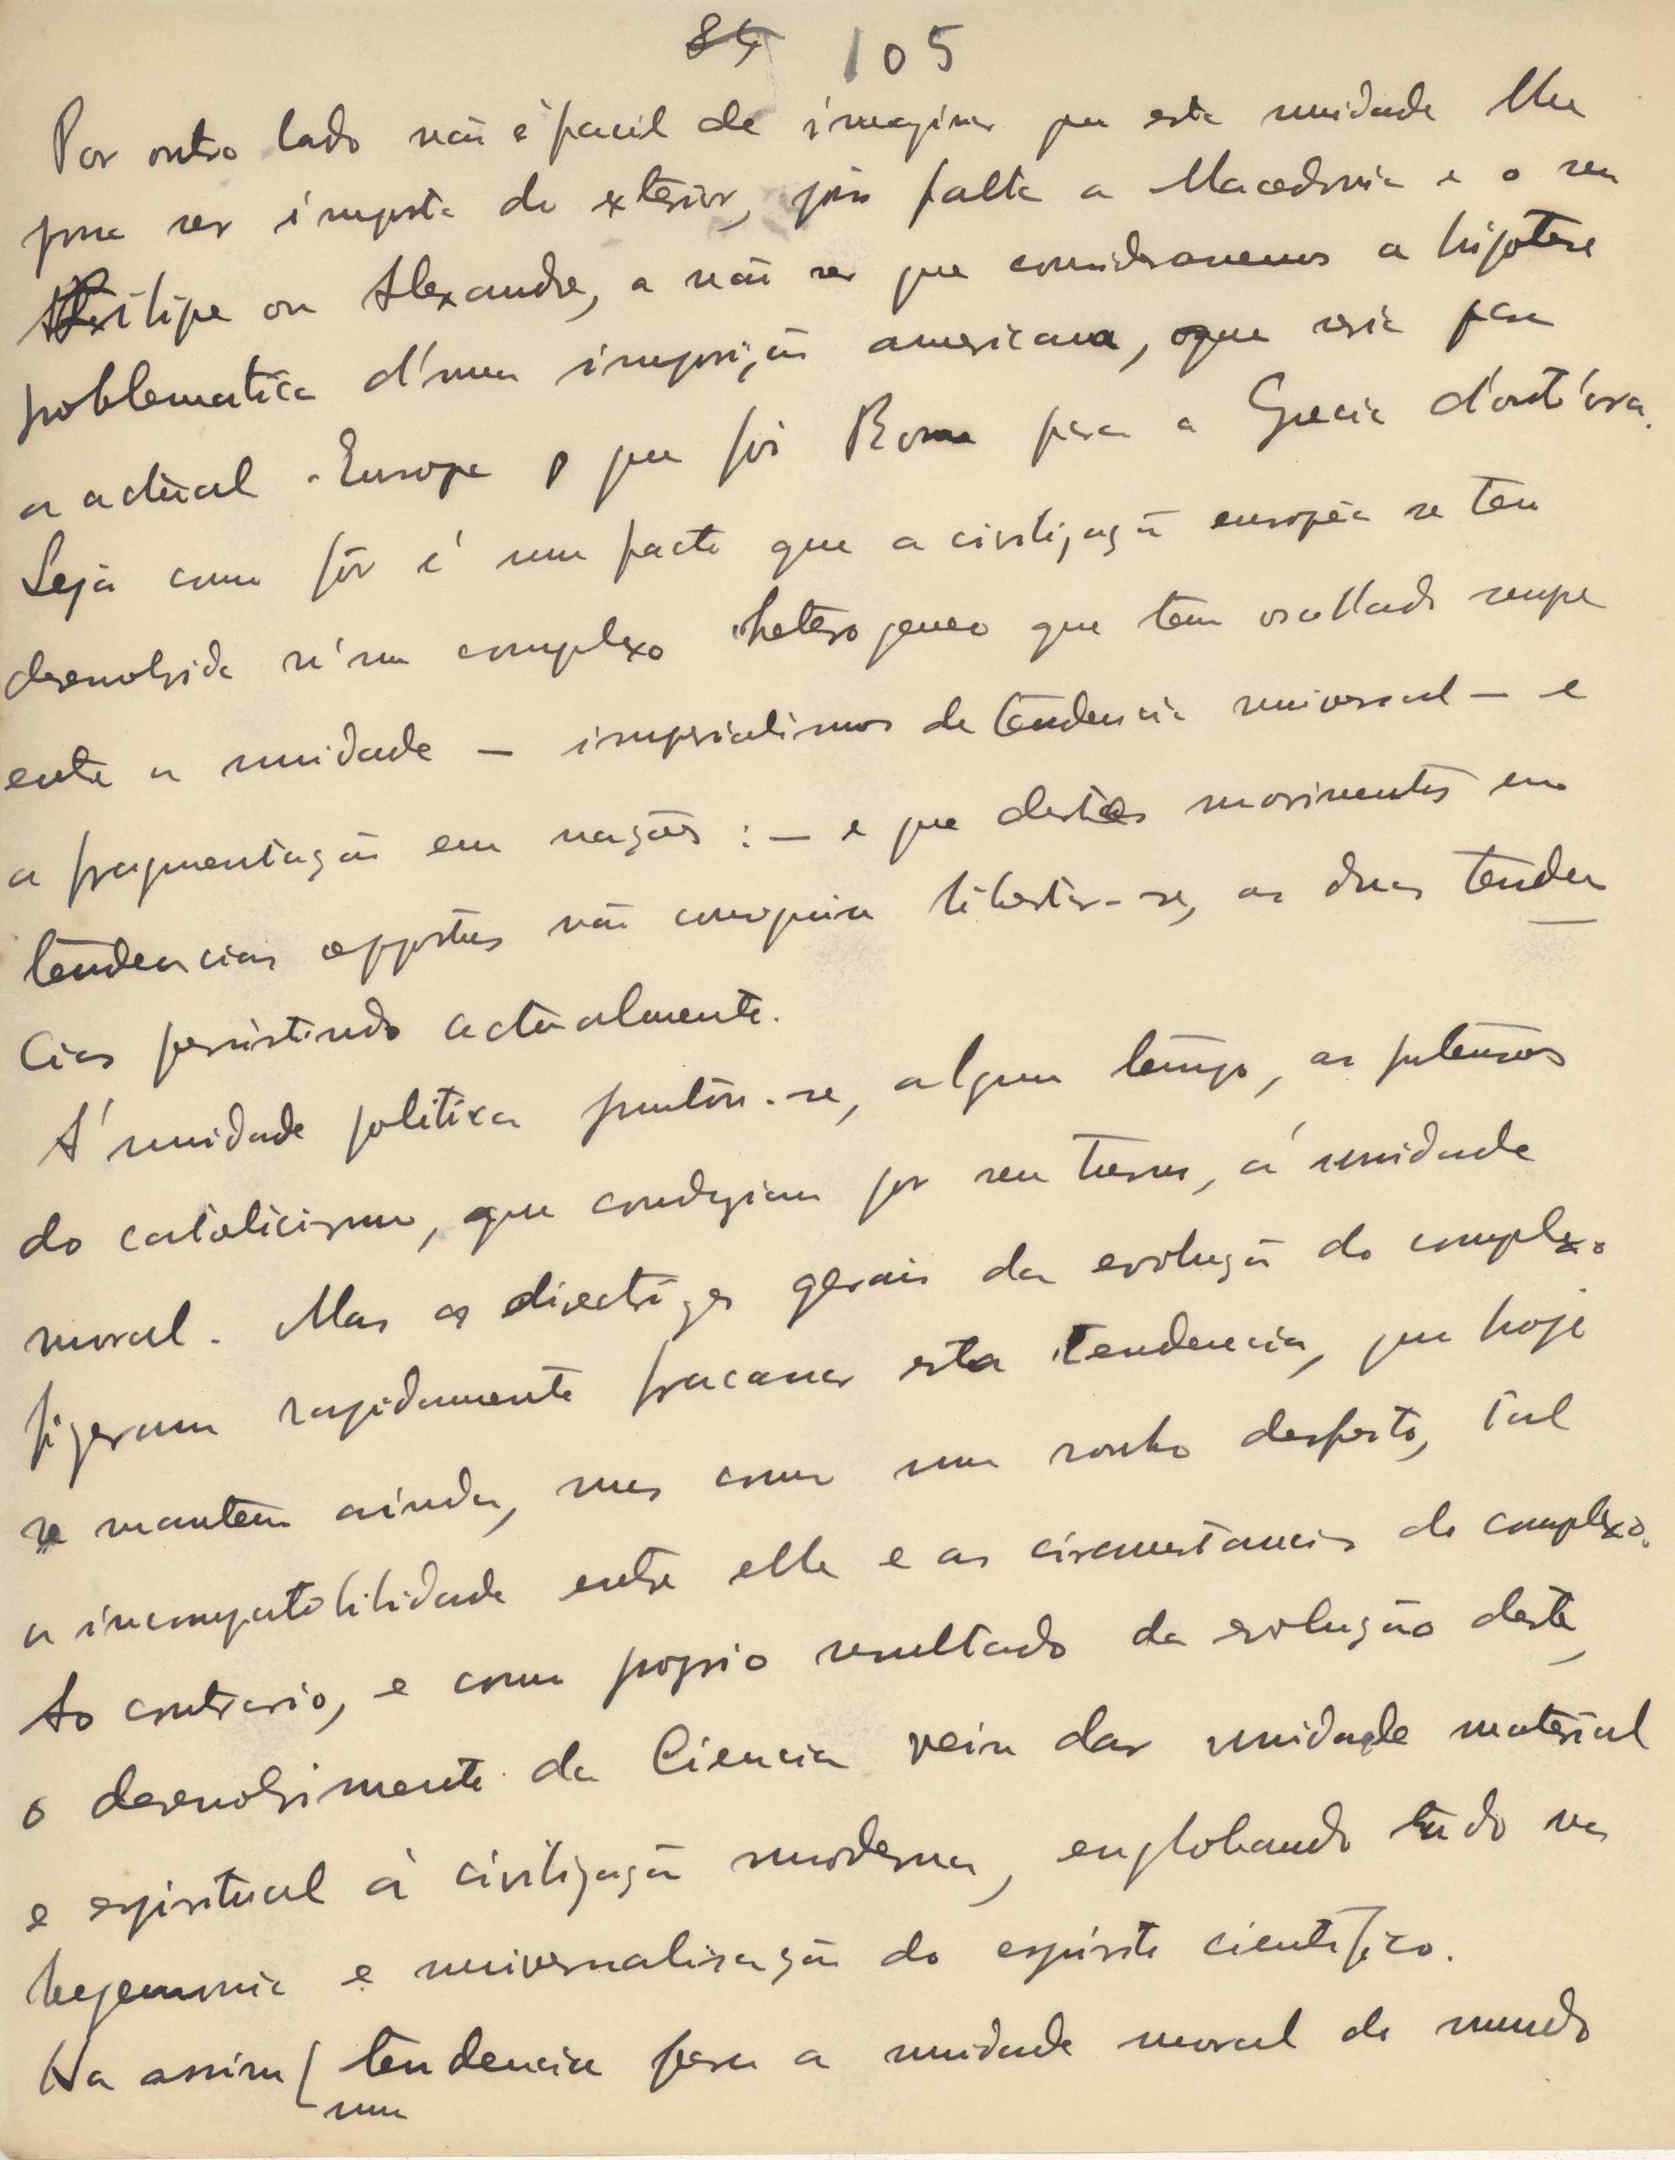 84 105
Por outro lado não é facil de imaginar que esta unidade lhe
possa ser imposta do exterior, pois falta a Macedonia e o seu
Filipe ou Alexandre, a não ser que consideremos a hipotese
problematica d'uma imposição americana, que seria para
a actual Europa o que foi Roma para a Grecia d'outr'ora.
Seja como fôr é um facto que a civilização européa se tem
desenvolvido n'um complexo heterogeneo que tem oscillado sempre
entre a unidade — imperialismos de tendencia universal — e
a fragmentação em nações : — e que destes movimentos em
tendencias oppostas não conseguiu libertar-se, as duas tenden
cias persistindo actualmente.
A' unidade politica juntou-se, algum tempo, as pretensões
do catolicismo, que conduziam por seu turno, á unidade
moral. Mas as directrizes gerais da evolução do complexo
fizeram rapidamente fracassar esta tendencia, que hoje
se mantem ainda, mas como um sonho desfeito, tal
a incompatibilidade entre elle e as circumstancias do complexo.
Ao contrario, e como proprio resultado da evolução deste,
o desenvolvimento da Ciencia veiu dar unidade material
e espiritual á civilização moderna, englobando tudo na
hegemonia e universalisação do espirito cientifico.
Ha assim tendencia para a unidade moral do mundo
uma